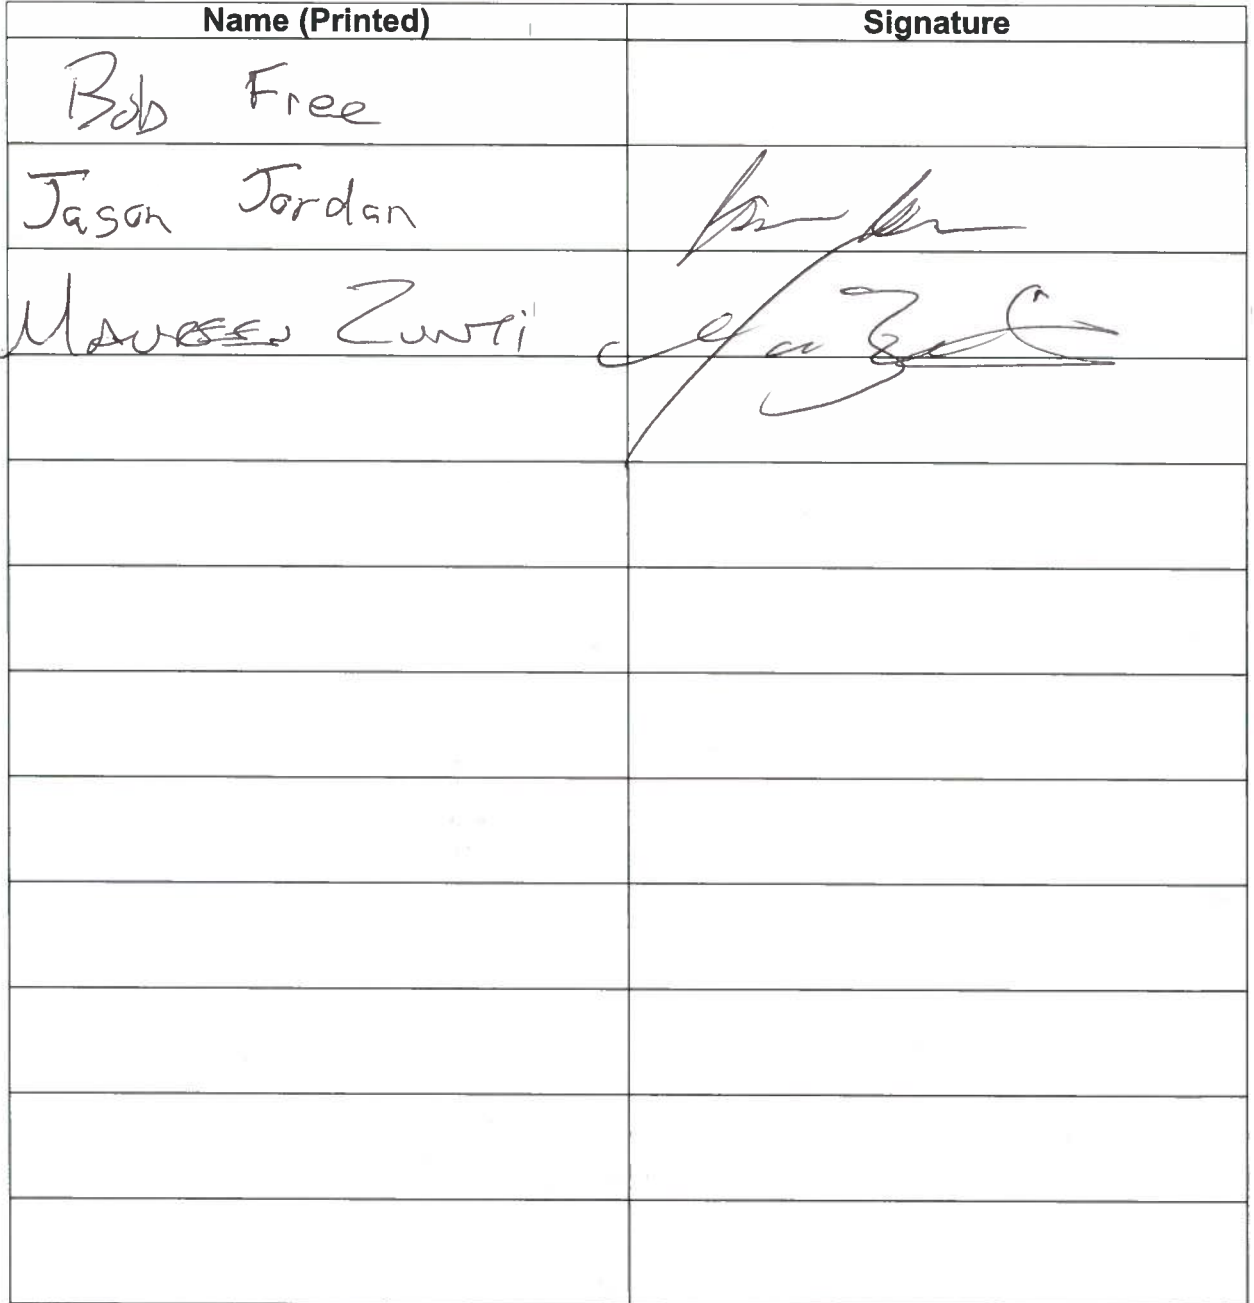 Name (Printed) Signature
Bob Free
Jason Jordan
Maureen Zunti